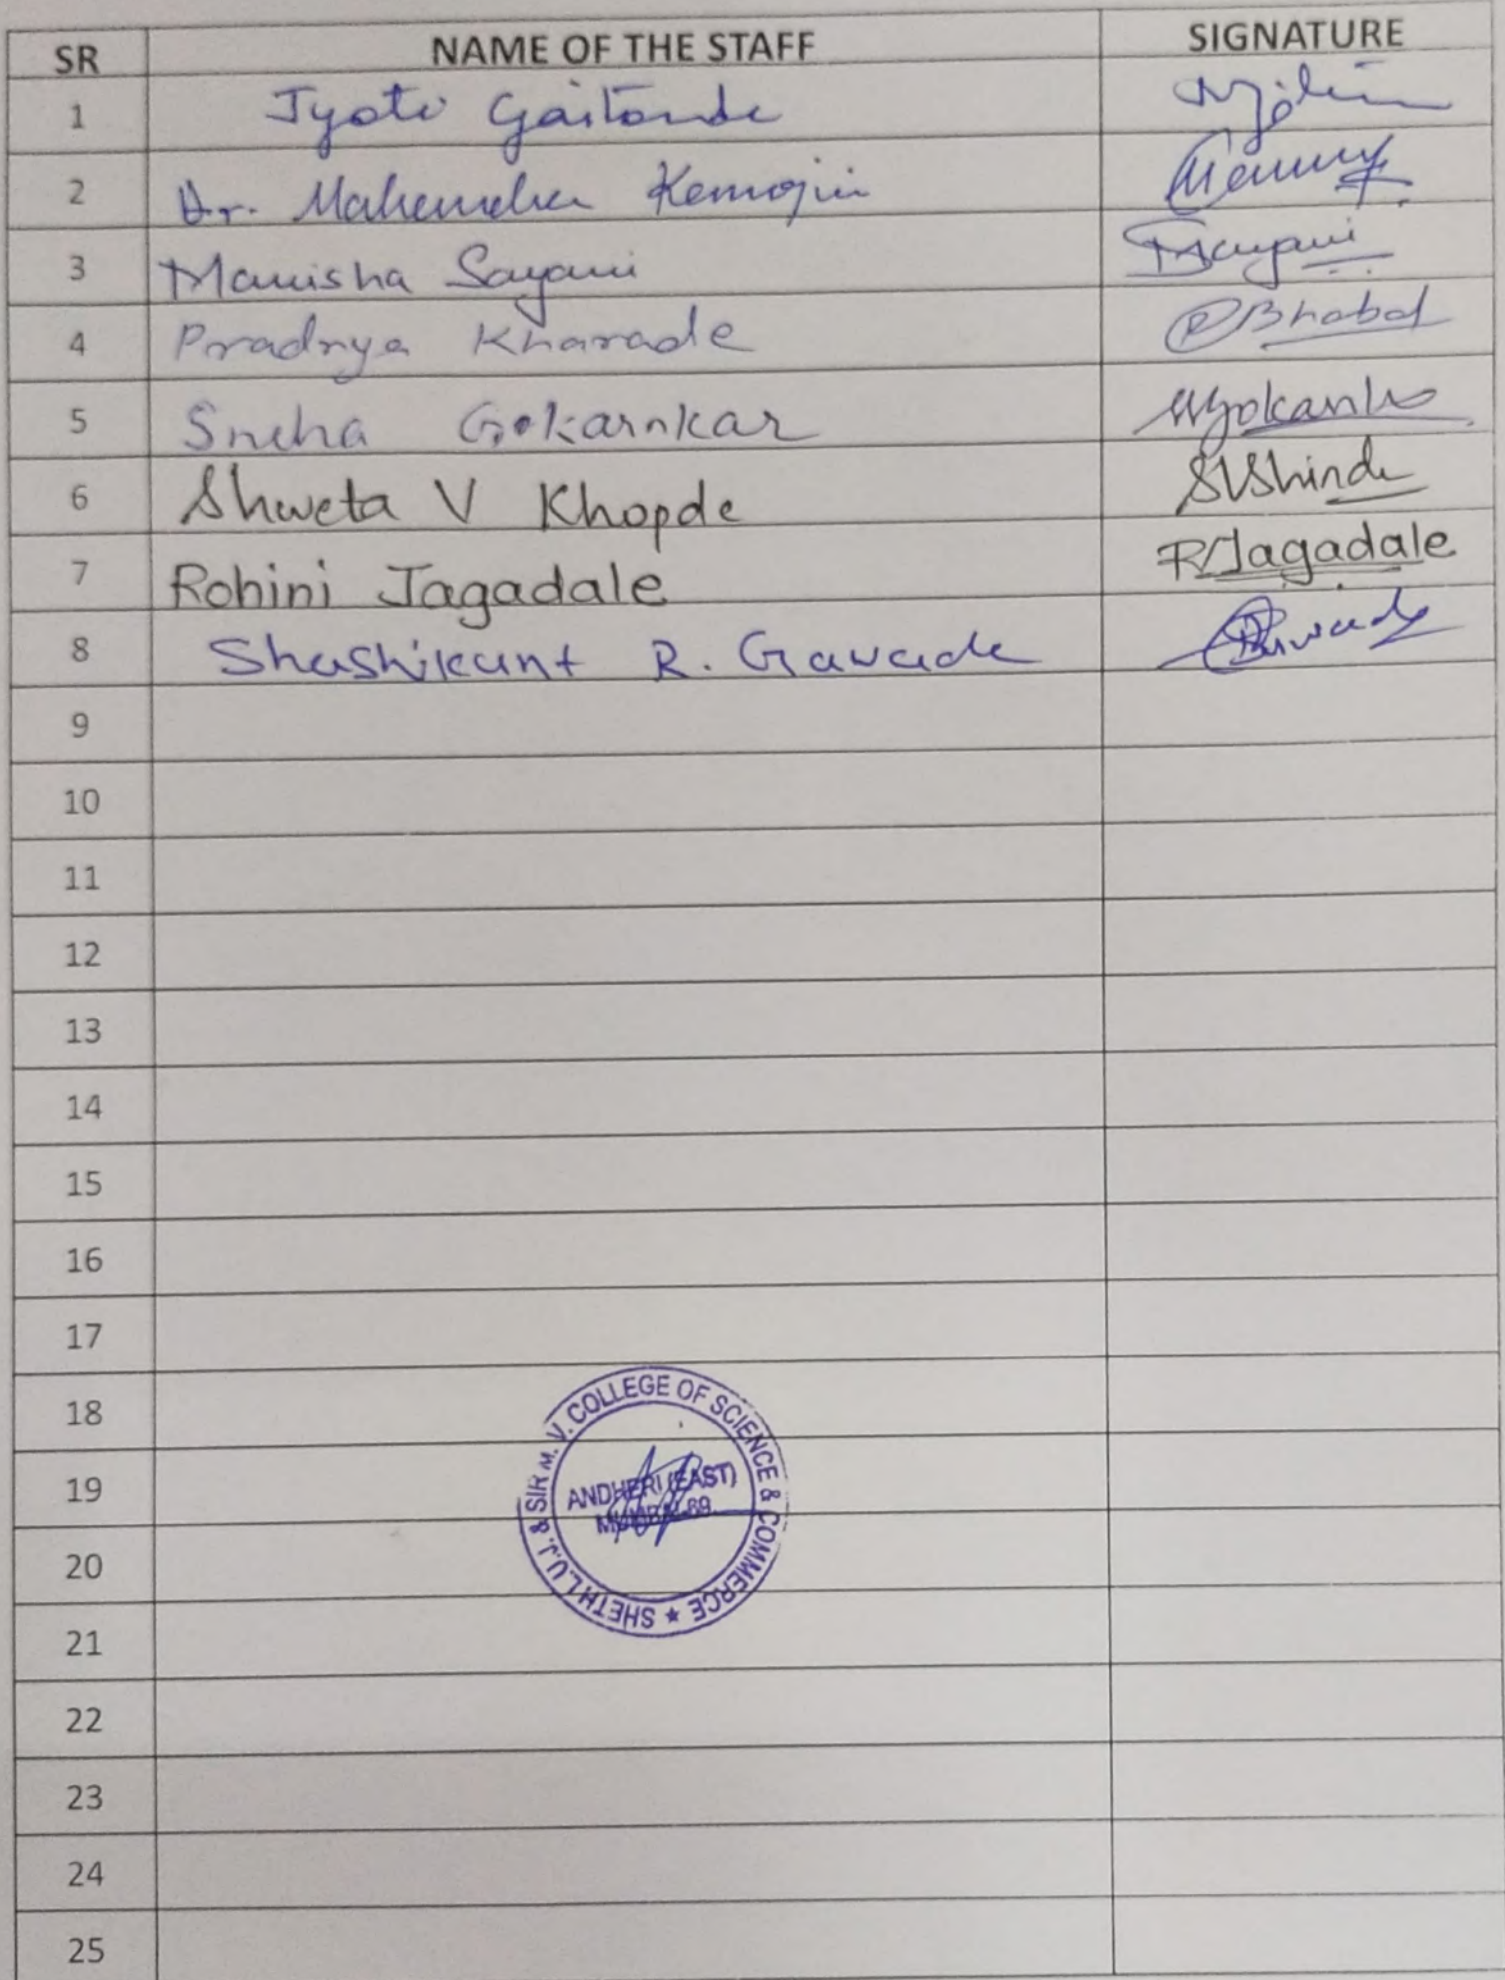 SR NAME OF THE STAFF SIGNATURE
1 Jyoti Gaitonde
2 Dr. Mahendra
3 Manisha Sayani Sayani
4 Pradnya Kharade PBhabal
5 Sneha Gokarnkar
6 Shweta V Khopde SVShinde
7 Rohini Jagadale RJagadale
8 Shashikant R. Gawade
9
10
11
12
13
14
15
16
17
18
19
20
21
22
23
24
25
SHETH L.U.J. & SIR M. V. COLLEGE OF SCIENCE & COMMERCE ★
ANDHERI (EAST)
MUMBAI-69.